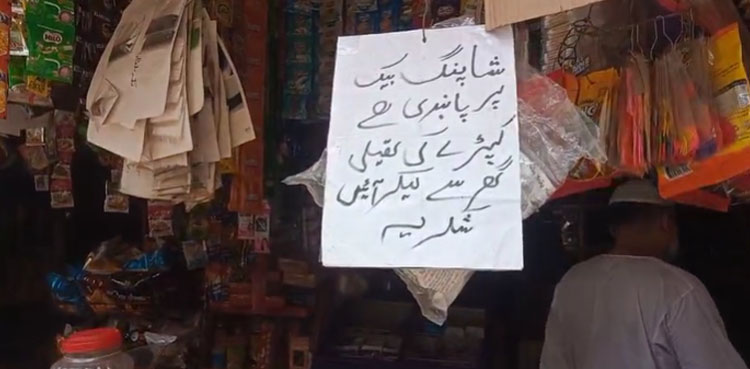 شاپنگ بیگ
پر پابندی ہے
کپڑے کی تھیلی
گھر سے لیکر آئیں
شکریہ